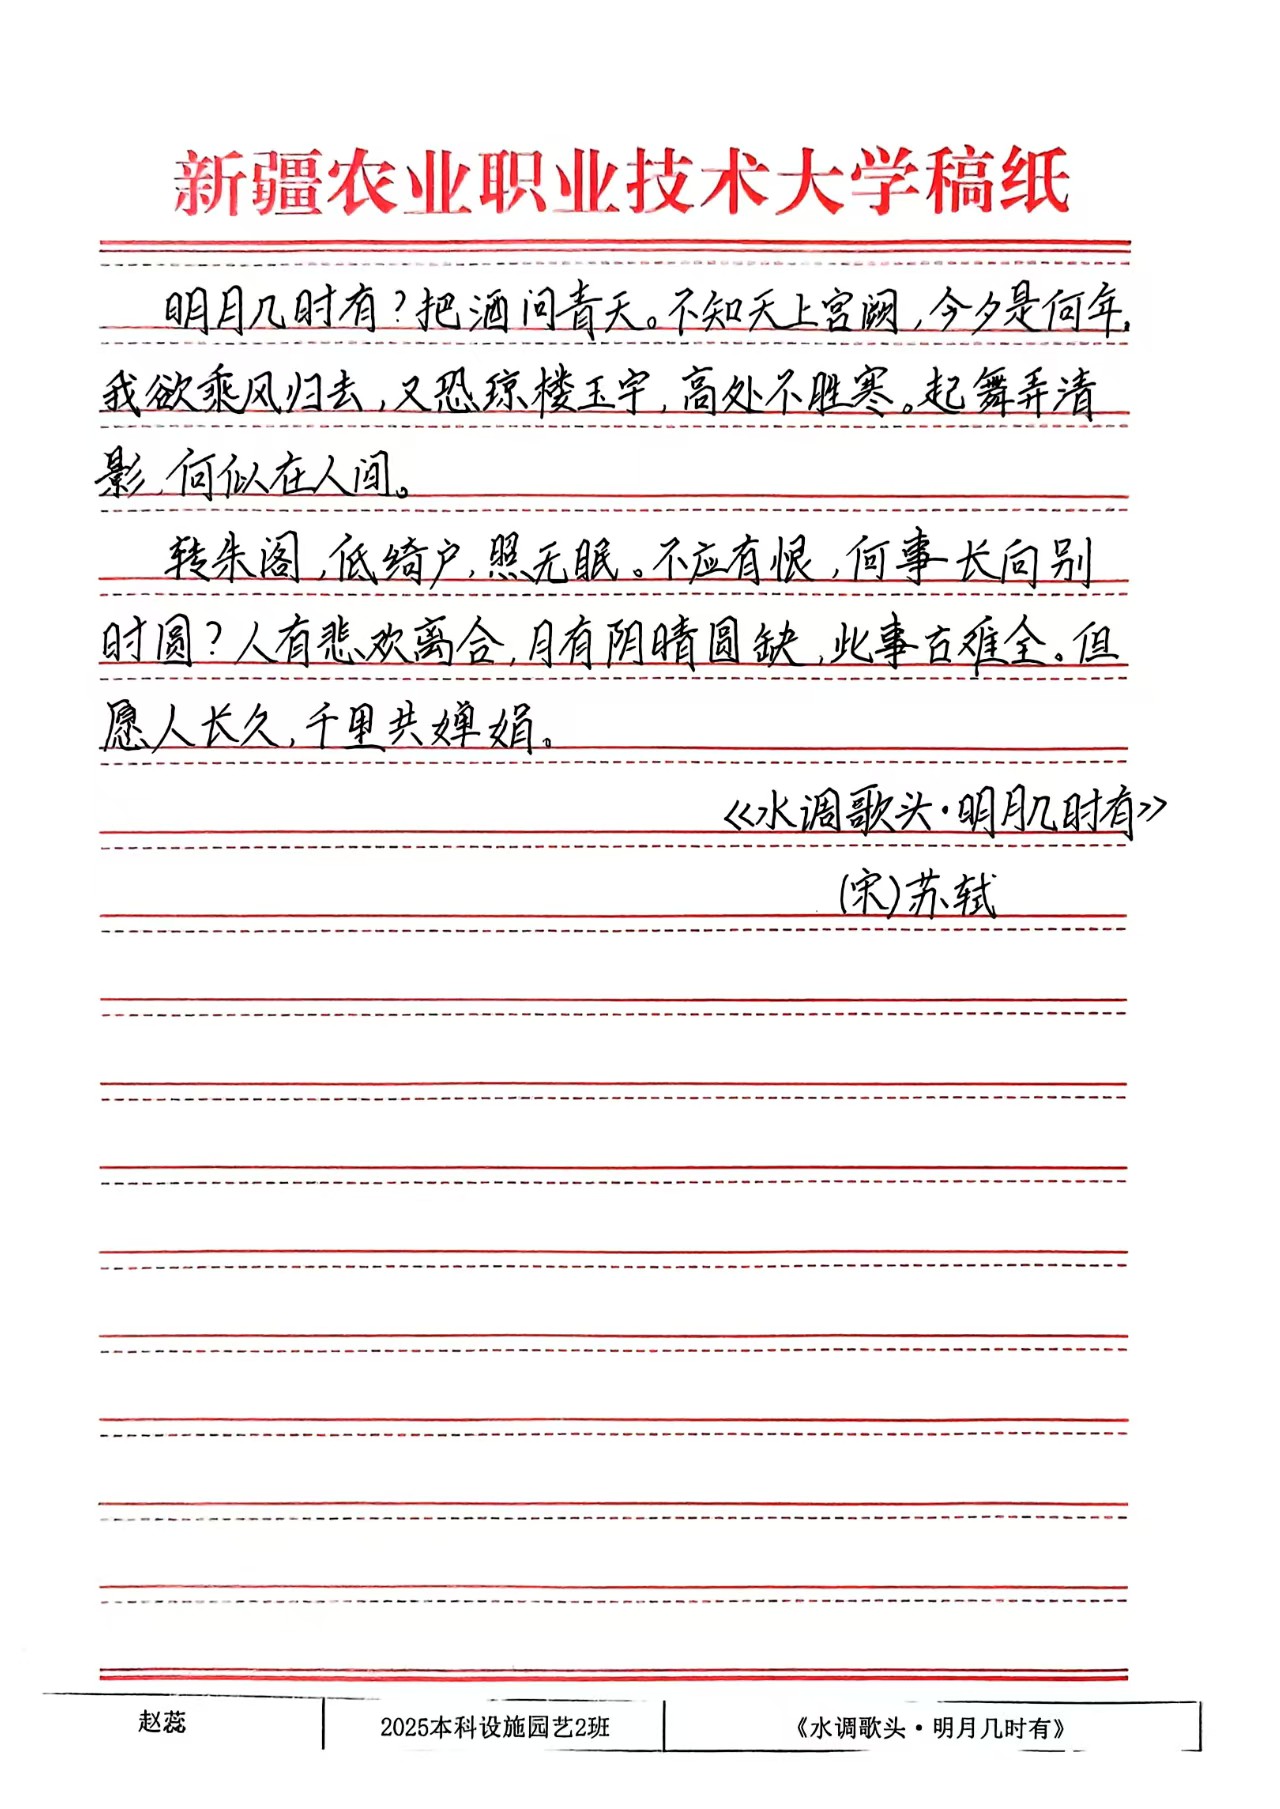 新疆农业职业技术大学稿纸
明月几时有？把酒问青天。不知天上宫阙，今夕是何年，
我欲乘风归去，又恐琼楼玉宇，高处不胜寒。起舞弄清
影，何似在人间。
转朱阁，低绮户，照无眠。不应有恨，何事长向别
时圆？人有悲欢离合，月有阴晴圆缺，此事古难全。但
愿人长久，千里共婵娟。
《水调歌头·明月几时有》
(宋)苏轼
赵蕊 2025本科设施园艺2班 《水调歌头·明月几时有》